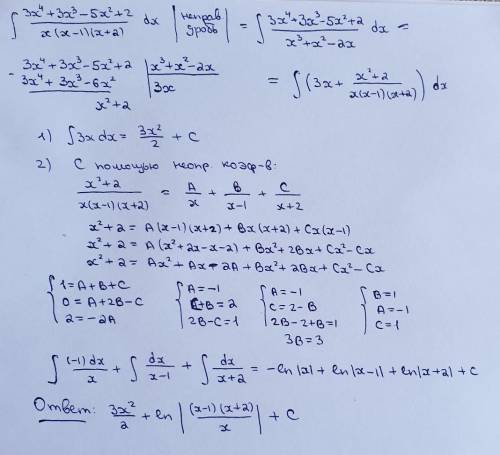 ∫ (3x⁴+3x³-5x²+2)/(x(x-1)(x+2)) dx | неправ дробь | = ∫ (3x⁴+3x³-5x²+2)/(x³+x²-2x) dx =
- 3x⁴+3x³-5x²+2 | x³+x²-2x
3x⁴+3x³-6x² | 3x
x²+2
= ∫ (3x + (x²+2)/(x(x-1)(x+2))) dx
1) ∫3x dx = 3x²/2 + C
2) С помощью неопр. коэф-в:
(x²+2)/(x(x-1)(x+2)) = A/x + B/(x-1) + C/(x+2)
x²+2 = A(x-1)(x+2) + Bx(x+2) + Cx(x-1)
x²+2 = A(x²+2x-x-2) + Bx²+2Bx+Cx²-Cx
x²+2 = Ax²+Ax-2A+Bx²+2Bx+Cx²-Cx
{ 1=A+B+C { A=-1 { A=-1 { B=1
0=A+2B-C C+B=2 C=2-B A=-1
2=-2A 2B-C=1 2B-2+B=1 C=1
3B=3
∫ (-1)dx/x + ∫ dx/(x-1) + ∫ dx/(x+2) = -ln|x| + ln|x-1| + ln|x+2| + C
Ответ: 3x²/2 + ln |(x-1)(x+2)/x| + C